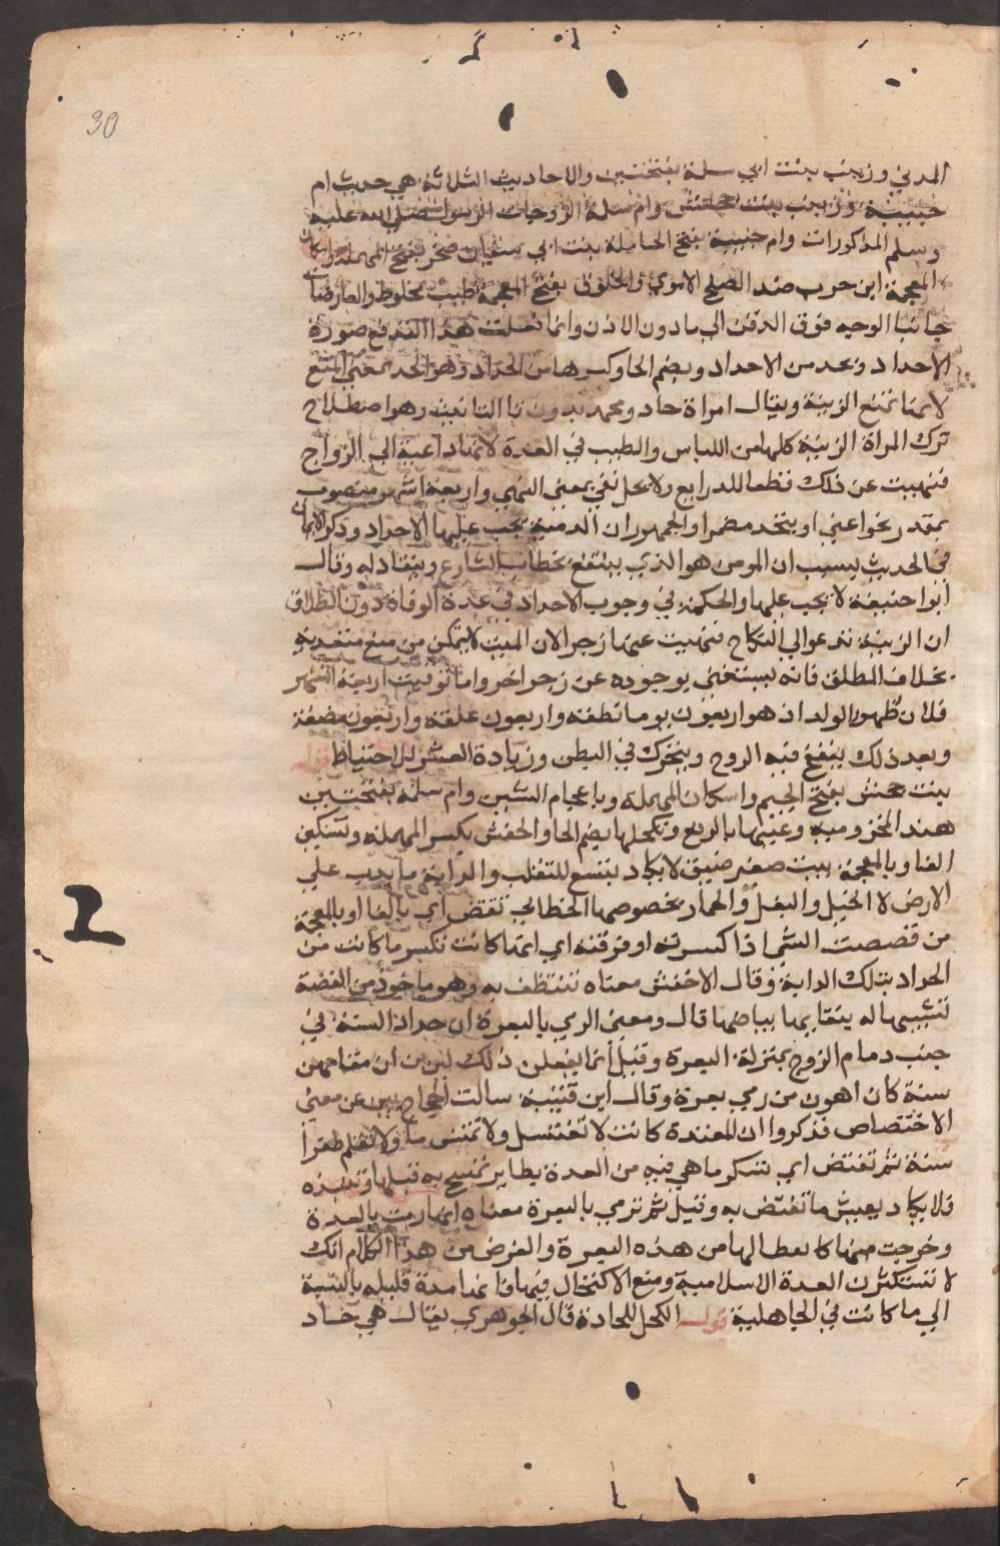 30
المدني وزينب بنت ابي سلمة بفتحتين والاحاديث الثلاثة هي حديث ام
حبيبة وزينب بنت جحش وام سلمة الزوجات الرسول صلى الله عليه
وسلم المذكورات وام حبيبة بفتح الحا رملة بنت ابي سفيان صخر بفتح المهملة واسكان
المعجمة ابن حرب ضد الصلح الاموي والخلوق بفتح المعجمة طيب مخلوط والعارضان
جانبا الوجه فوق الذقن الى ما دون الاذن وانما فعلت هذا لتدفع صورة
الاحداد وتحد من الاحداد وبضم الحا وكسرها من الحداد وهو الحد بمعنى المنع
لانها تمنع الزينة ويقال امراة حاد ومحمد بدون تا التانيث وهو اصطلاح
ترك المراة الزينة كلها من اللباس والطيب في العدة لانها داعية الى الزواج
فنهيت عن ذلك قطعا للذرايع ولا يحل نفي بمعنى النهي واربعة اشهر منصوب
بمقدر نحو اعني او بتحد مضمرا والجمهور ان الذمية يجب عليها الاحداد وذكر الايمان
في الحديث بسبب ان المومن هو الذي ينتفع بخطاب الشارع وينقاد له وقال
ابوا حنيفة لا يجب عليها والحكمة في وجوب الاحداد في عدة الوفاة دون الطلاق
ان الزينة تدعو الى النكاح فنهيت عنها زجرا لان الميت لا يتمكن من منع معتدته
بخلاف المطلق فانه يستغني بوجوده عن زجر اخر واما توقيت اربعة اشهر
فلان ظهور الولد اذ هو اربعون يوما نطفة واربعون علقة واربعون مضغة
وبعد ذلك ينفخ فيه الروح ويتحرك في البطن وزيادة العشر للاحتياط قوله
بنت جحش بفتح الجيم واسكان المهملة وباعجام الشين وام سلمة بفتحتين
هند المخزومية وعينها بالرفع وتكحلها بضم الحا والحفش بكسر المهملة وتسكين
الفا وبالمعجمة بيت صغير ضيق لا يكاد يتسع للتقلب والدابة ما يدب على
الارض لا الخيل والبغل والحمار بخصوصها الخطابي تفتض اي بالفا وبالمعجمة
من فضضت الشي اذا كسرته او فرقته اي انها كانت تكسر ما كانت من
الحداد بتلك الدابة وقال الاخفش معناه تتنظف به وهو ماخوذ من الفضة
تشبيها له بنقايها ببياضها قال ومعنى الرمي بالبعرة ان حداد السنة في
جنب دمام الزوج بمنزلة البعرة وقيل انما يفعلن ذلك ليرين ان مقامهن
سنة كان اهون من رمي بعرة وقال ابن قتيبة سالت الحجازيين عن معنى
الاختصاص فذكروا ان المعتدة كانت لا تغتسل ولا تمس ما ولا تقلم ظفرا
سنة ثم تفتض اي تكسر ما هي فيه من العدة بطاير تمسح به قبلها وتنبذه
فلا يكاد يعيش ما تفتض به وقيل ثم ترمي بالبعرة معناه انها رمت بالعدة
وخرجت منها كانفصالها من هذه البعرة والغرض من هذا الكلام انك
لا تستكثرن العدة الاسلامية ومنع الاكتحال فيها فانها مدة قليلة بالنسبة
الى ما كانت في الجاهلية قوله الكحل للحادة قال الجوهري يقال هي حاد